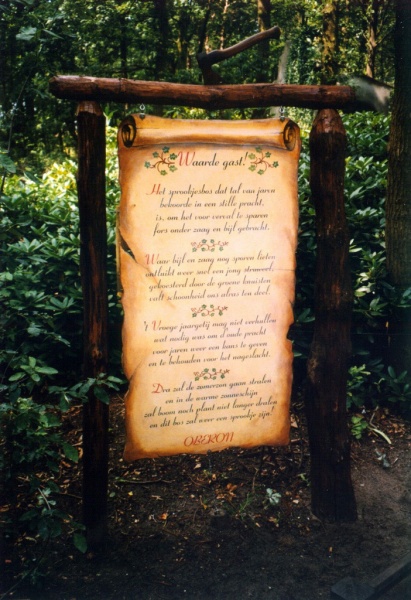 Waarde gast!
Het sprookjesbos dat tal van jaren
bekoorde in een stille pracht,
is, om het voor verval te sparen
fors onder zaag en bijl gebracht.
Waar bijl en zaag nog sparen lieten
ontluikt weer snel een jong struweel,
gekoesterd door de groene kunsten
valt schoonheid ons alras ten deel.
't Vroege jaargetij mag niet verhullen
wat nodig was om d'oude pracht
voor jaren weer een kans te geven
en te behouden voor het nageslacht.
Dra zal de zomerzon gaan stralen
en in de warme zonneschijn
zal boom noch plant niet langer dralen
en dit bos zal weer een sprookje zijn!
OBERON